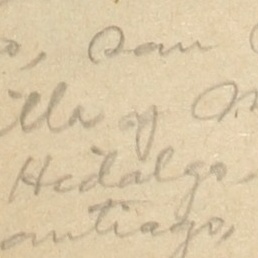 o, San
illa y M
Hidalgo
antiago,